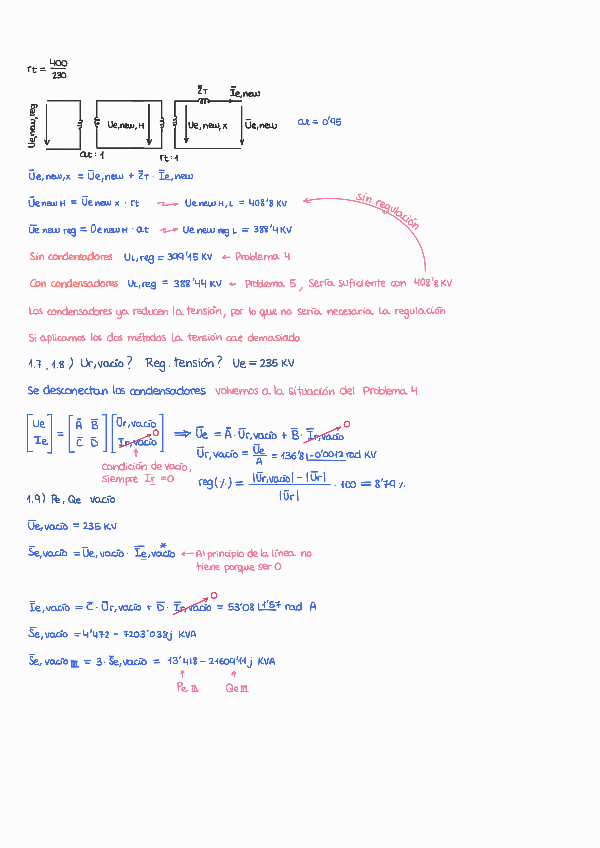 rt = 400/230
Z̄T Īe,new
Ue,new,reg Ue,new,H Ue,new,x Ūe,new at = 0'95
at : 1 rt : 1
Ūe,new,x = Ūe,new + Z̄T · Īe,new
Ūe new H = Ūe new x · rt ⟿ Ue new H,L = 408'8 KV sin regulación
Ūe new reg = Ūe new H · at ⟿ Ue new reg L = 388'4 KV
Sin condensadores UL,reg = 399'15 KV ← Problema 4
Con condensadores UL,reg = 388'44 KV ← Problema 5, Sería suficiente con 408'8 KV
Los condensadores ya reducen la tensión, por lo que no sería necesaria la regulación
Si aplicamos los dos métodos la tensión cae demasiado
1.7, 1.8) Ur,vacío? Reg. tensión? Ue = 235 KV
Se desconectan los condensadores volvemos a la situación del Problema 4
[Ue Ie] = [Ā B̄ C̄ D̄] [Ūr,vacío Īr,vacío 0] ⟹ Ūe = Ā · Ūr,vacío + B̄ · Īr,vacío 0
Ūr,vacío = Ūe/A = 136'8 |-0'0012 rad KV
condición de vacío,
siempre Ir = 0
reg(%) = |Ūr,vacío| - |Ūr| / |Ūr| · 100 = 8'79 %
1.9) Pe, Qe vacío
Ūe,vacío = 235 KV
S̄e,vacío = Ūe,vacío · Īe,vacío* ← Al principio de la línea no
tiene porque ser 0
Īe,vacío = C̄ · Ūr,vacío + D̄ · Īr,vacío 0 = 53'08 |1'57 rad A
S̄e,vacío = 4'472 - 7203'038j KVA
S̄e,vacío III = 3 · S̄e,vacío = 13'418 - 21609'11j KVA
Pe III Qe III